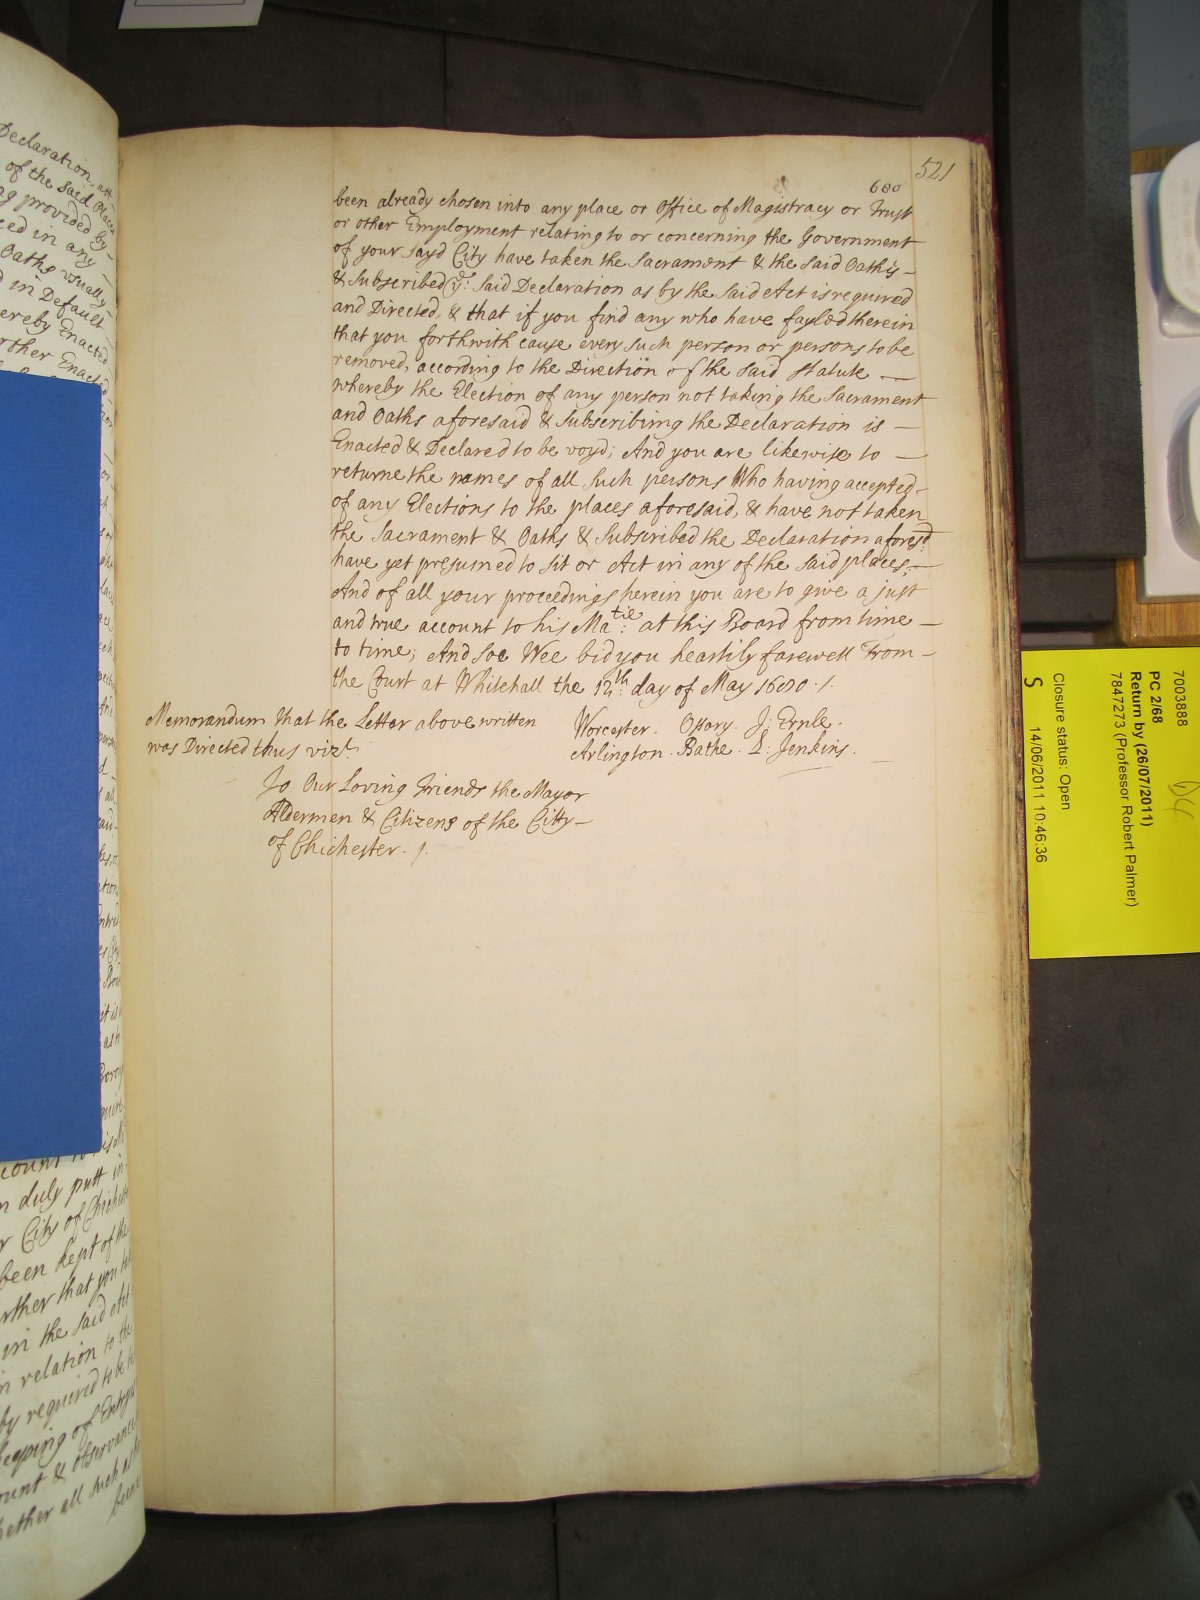 521
680
been already chosen into any place or Office of Magistracy or Trust
or other Employment relating to or concerning the Government
of your sayd City have taken the Sacrament & the said Oathes –
& Subscribed ye: said Declaration as by the said Act is required
and Directed, & that if you find any who have fayled therein
that you forthwith cause every such person or persons to be
removed, according to the Direction of the said Statute —
whereby the Election of any person not taking the Sacrament
and Oaths aforesaid & Subscribing the Declaration is —
Enacted & Declared to be voyd; And you are likewise to —
returne the names of all such persons Who having accepted –
of any Elections to the places aforesaid, & have not taken
the Sacrament & Oaths & Subscribed the Declaration aforesd:
have yet presumed to sit or Act in any of the said places, —
And of all your proceedings herein you are to give a just
and true account to his Matie: at this Board from time —
to time; And soe Wee bid you heartily farewell From –
the Court at Whitehall the 12th: day of May 1680 ·/·
Memorandum that the Letter above written
was Directed thus vizt.
Worcester. Ossory. J: Ernle.
Arlington. Bathe. L: Jenkins.
To Our Loving Friends the Mayor
Aldermen & Citizens of the Citty –
of Chichester. /.
Declaration,
of the said Place
provided by
ced in any
Oaths usually
d in Default
ereby Enacted
rther Enacted
duly putt in
City of Chichester
been kept of the
rther that you
in the said Act
in relation to the
by required to be
keeping of
ount & observance
hether all such
been
7003888
PC 2/68
Return by (26/07/2011)
7847273 (Professor Robert Palmer)
Closure status: Open
S
14/06/2011 10:46:36